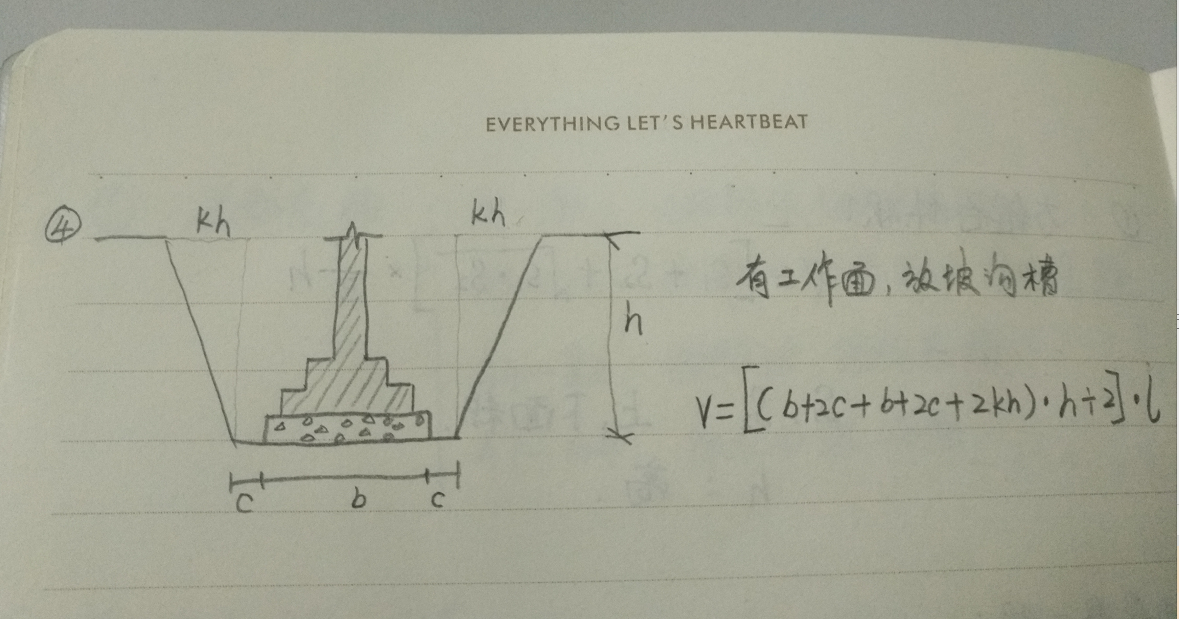 EVERYTHING LET'S HEARTBEAT
④
kh
kh
有工作面,放坡沟槽
h
V=[(b+2c+b+2c+2kh)·h÷2]·l
c
b
c